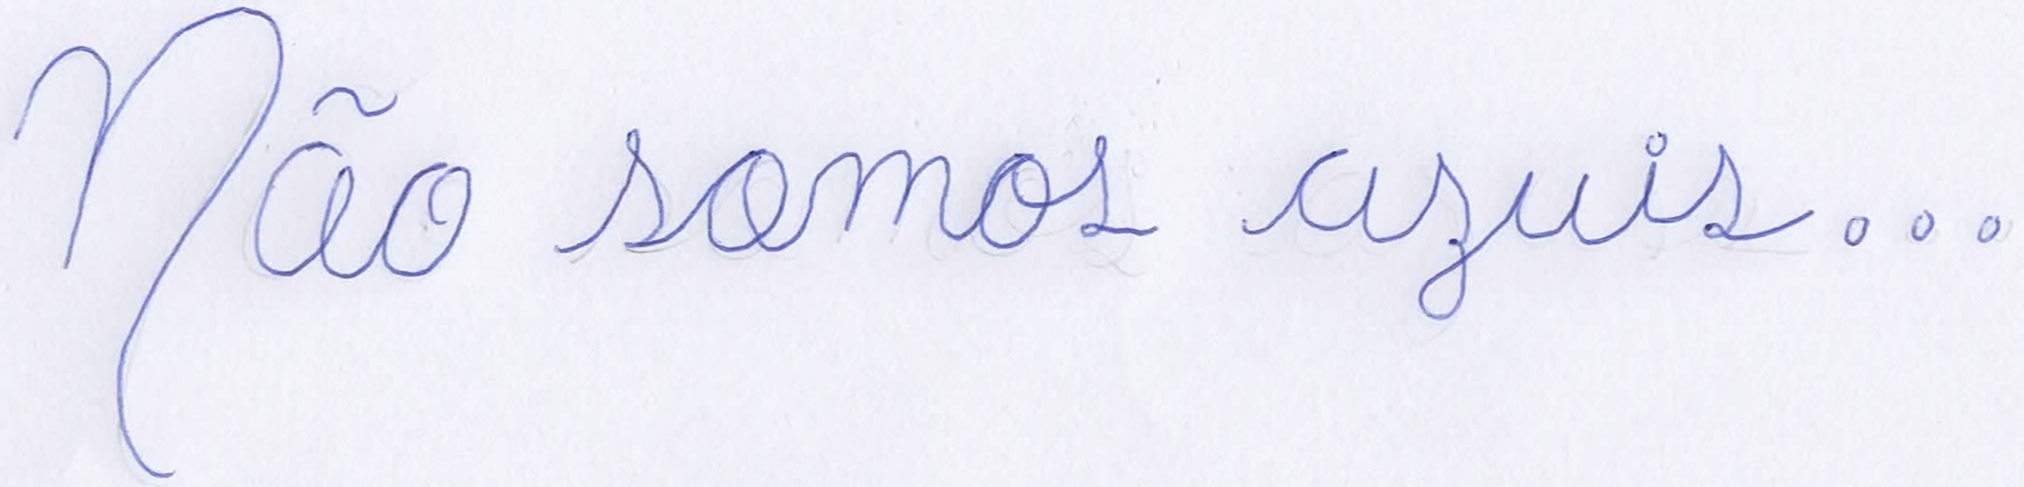 Não somos azuis...